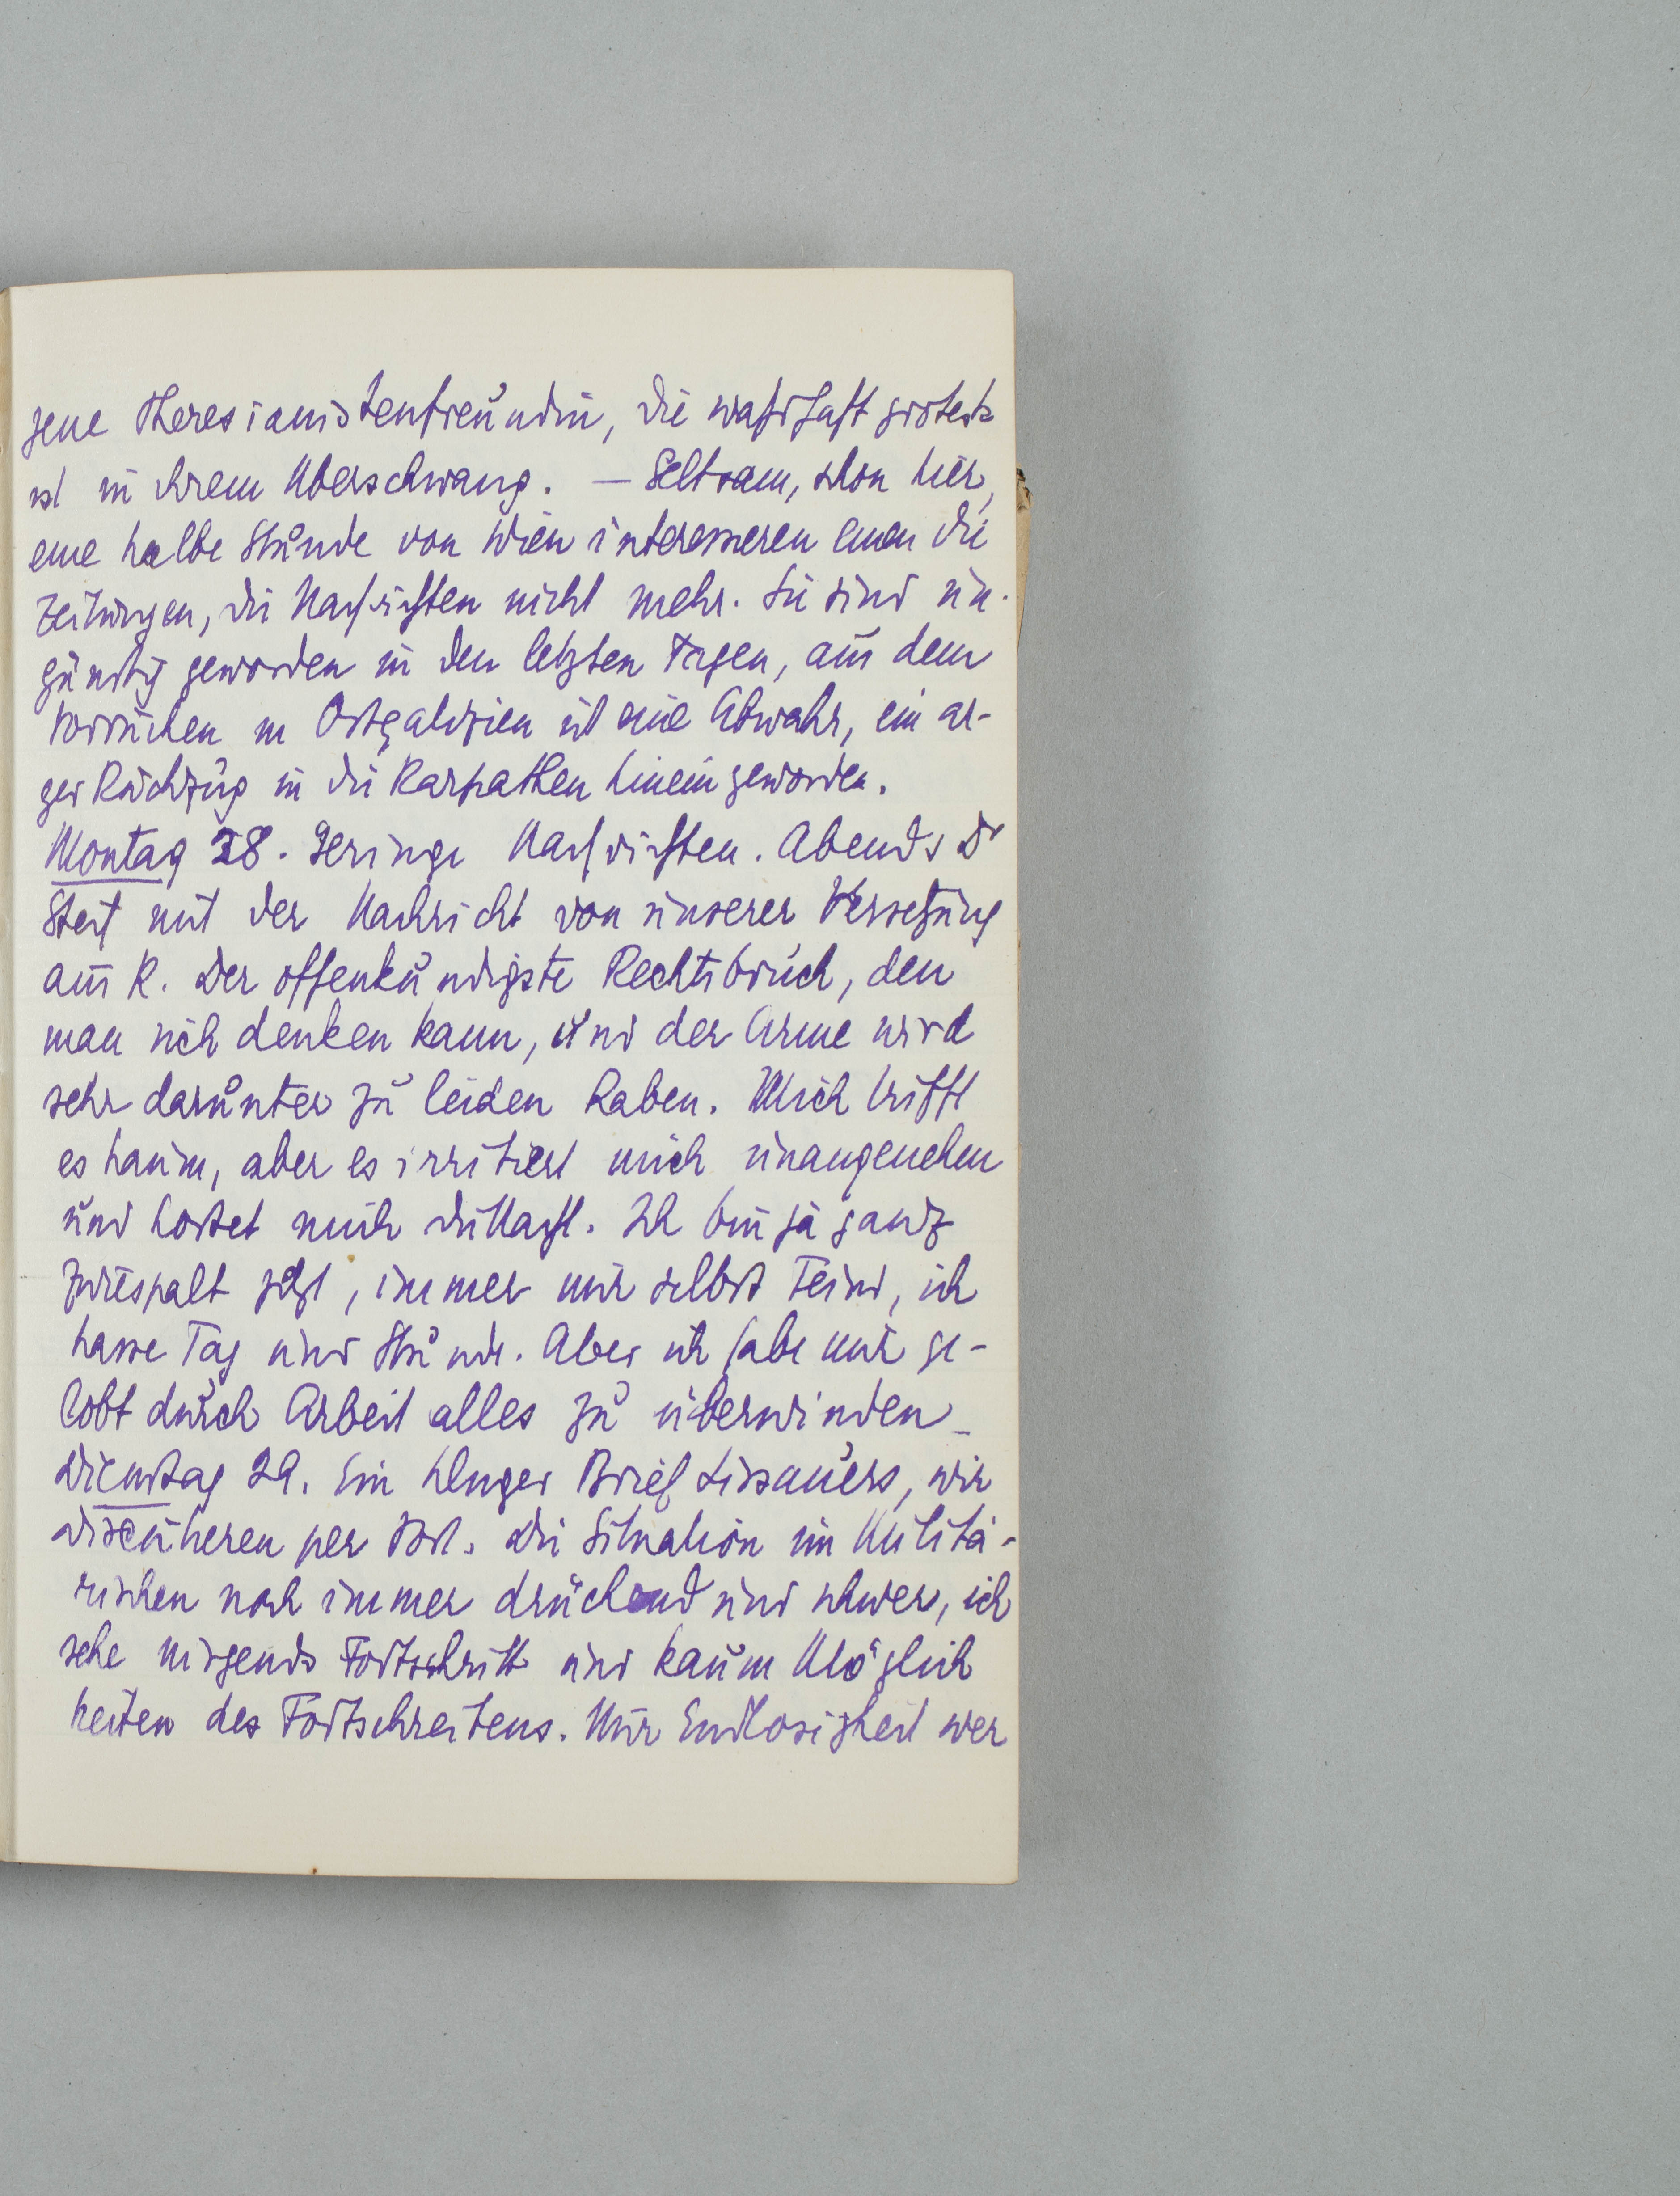 jene Theresianistenfreundin, die wahrhaft grotesk
ist in ihrem Überschwang. – Seltsam, schon hier,
eine halbe Stunde von Wien interessieren einen die
Zeitungen, die Nachrichten nicht mehr. Sie sind un-
günstig geworden in den letzten Tagen, aus dem
Vorrücken in Ostgalizien ist eine Abwehr, ein ar-
ger Rückzug in die Karpathen hinein geworden.
Montag 28. Geringe Nachrichten. Abends Dr
mit der Nachricht von unserer Versetzung
aus R. Der offenkundigste Rechtsbruch, den
man sich denken kann, und der Arme wird
sehr darunter zu leiden haben. Mich trifft
es kaum, aber es irritiert mich unangenehm
und kostet mich die Nacht. Ich bin ja ganz
Zwiespalt jetzt, immer mir selbst Feind, ich
hasse Tag und Stunde. Aber ich habe mir ge-
lobt durch Arbeit alles zu überwinden
Dienstag 29. Ein kluger Brief Lissauers, wir
discutieren per Post. Die Situation im Militä-
rischen noch immer drückend und schwer, ich
sehe nirgends Fortschritt und kaum Möglich
keiten des Fortschreitens. Nur Endlosigkeit wer